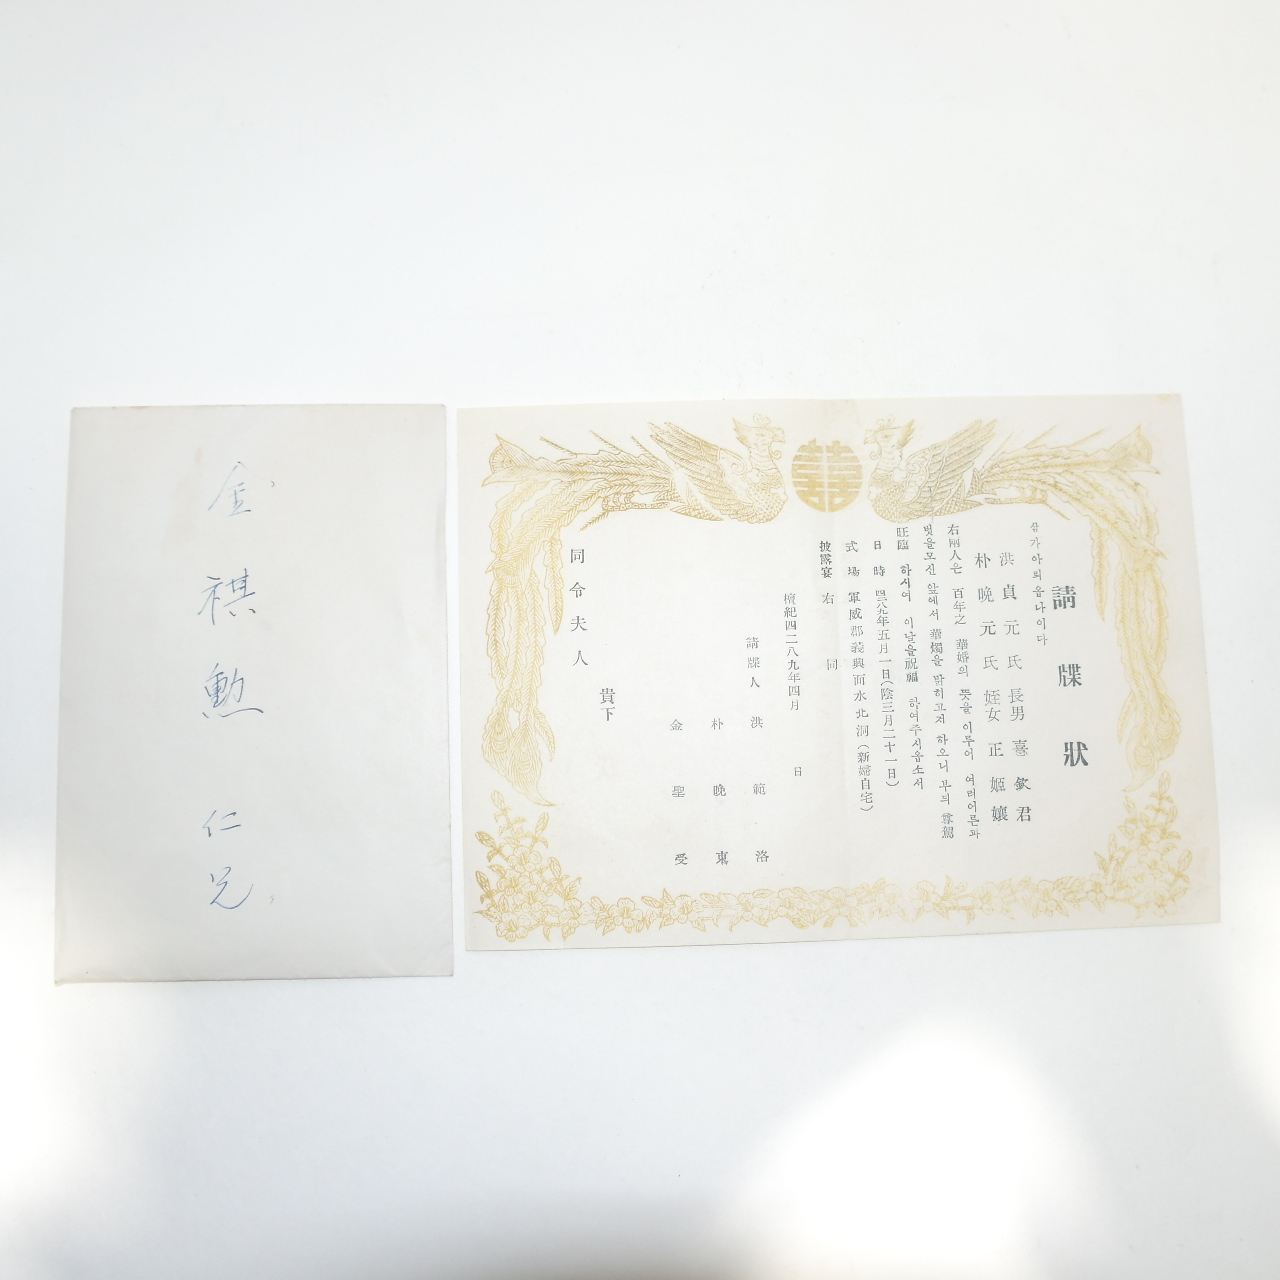 金祺勳 仁兄
囍
請牒狀
삼가아뢰옵나이다
洪貞元氏 長男 喜欽君
朴晩元氏 姪女 正姬孃
右兩人은 百年之 華婚의 뜻을 이루어 여러어른과
벗을모신 앞에서 華燭을 밝히고저 하으니 부듸 尊駕
旺臨 하시여 이날을祝福 하여주시옵소서
日時 四二八九年五月一日(陰三月二十一日)
式場 軍威郡義興面水北洞(新婦自宅)
披露宴 右同
檀紀四二八九年四月 日
請牒人 洪範洛
朴晩東
金聖受
貴下
同令夫人